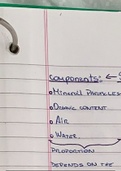 Components: ← S
• Mineral Particles
• Organic Content
• Air
• Water
Proportion
Depends on the